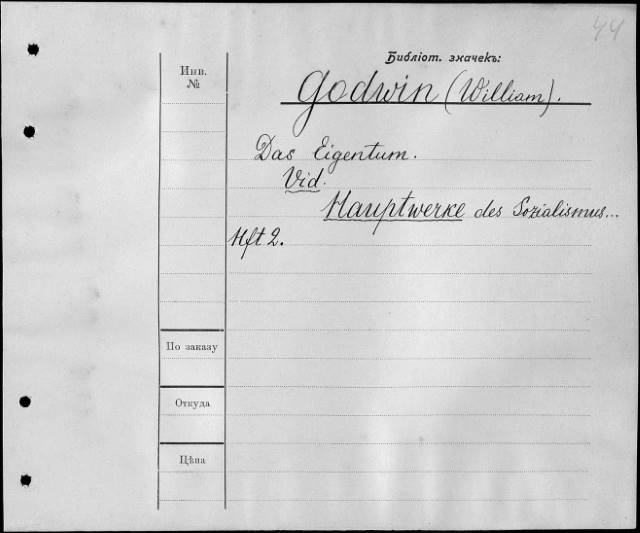 44
Библіот. значекъ:
Инв.
№
Godwin (William).
Das Eigentum.
Vid.
Hauptwerke des Sozialismus...
Hft 2.
По заказу
Откуда
Цѣна